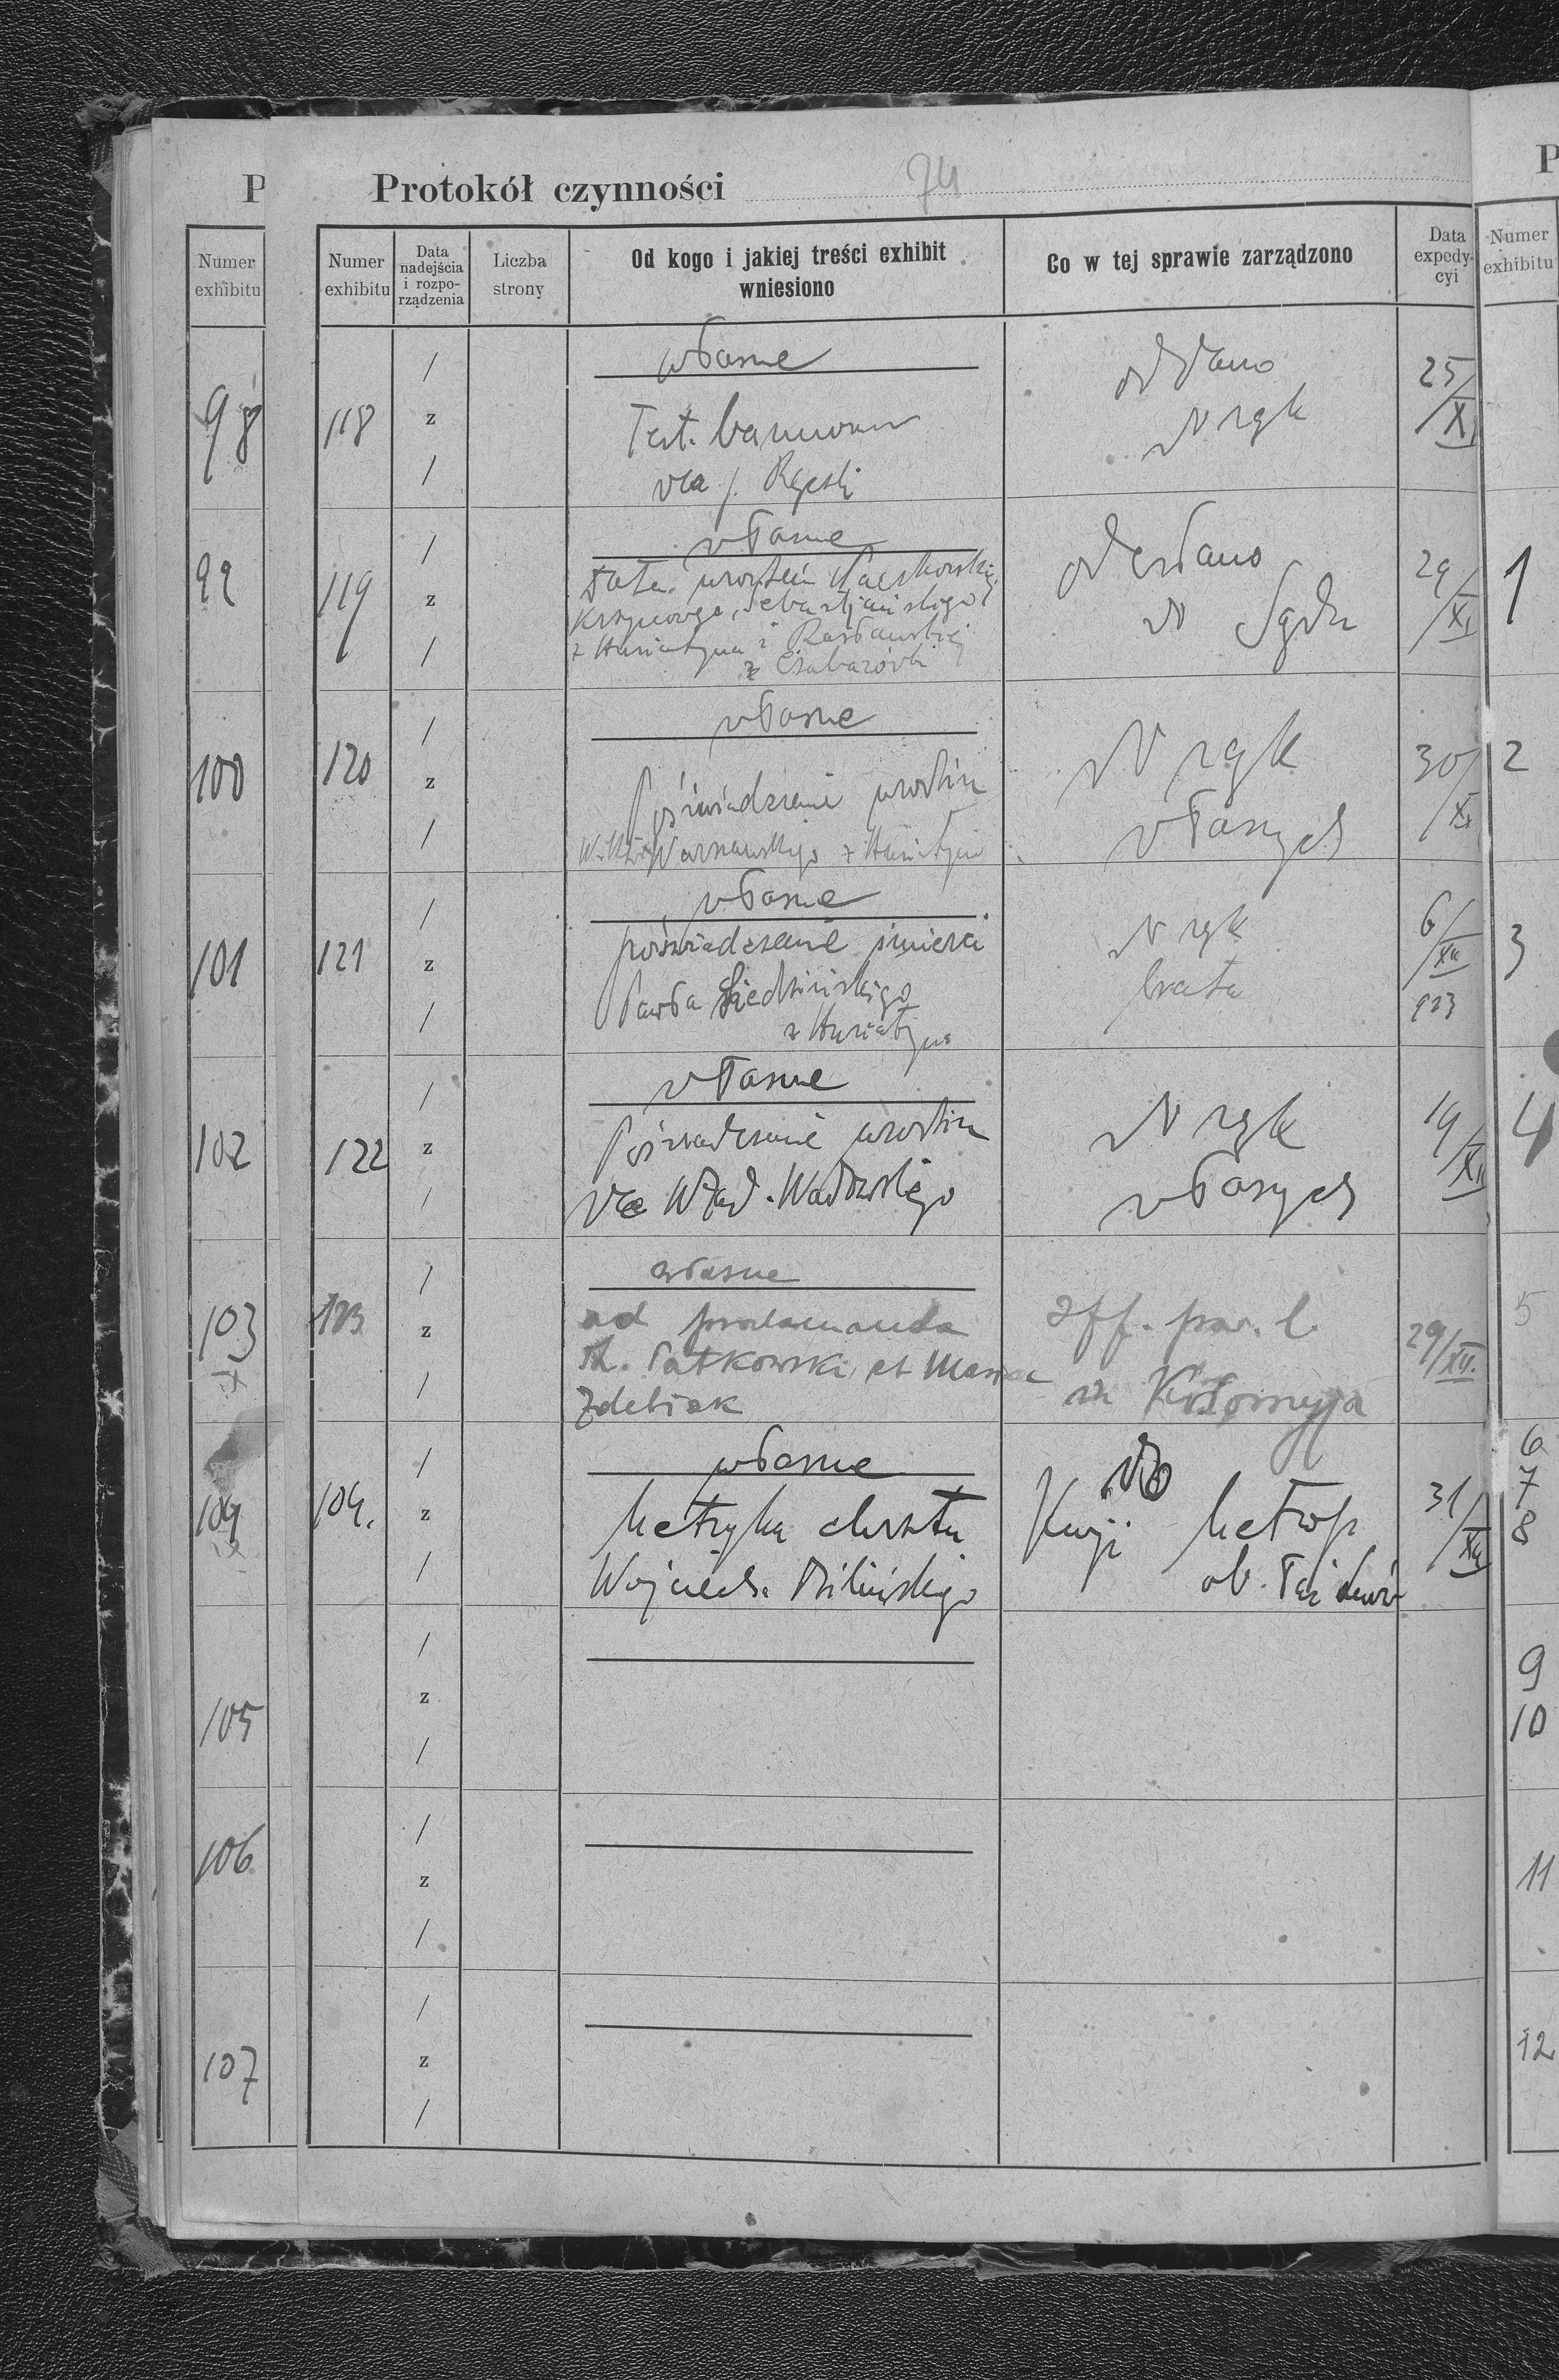 P
Protokół czynności 74
P
Numer exhibitu
Numer exhibitu
Data nadejścia i rozporządzenia
Liczba strony
Od kogo i jakiej treści exhibit wniesiono
Co w tej sprawie zarządzono
Data expedycyi
Numer exhibitu
98
118
/ z /
własne
Test.
dla j.
oddano
do rąk
25/XI
99
119
/ z /
własne
Data urodzeń
z Husiatyna i
z Czabarówki
odesłano
do Sądu
29/XI
1
100
120
/ z /
własne
Poświadczenie urodzin
z Husiatyna
do rąk
własnych
30/XI
2
101
121
/ z /
własne
poświadczenie śmierci
Pawła Siedzińskiego
z Husiatyna
do rąk
brata
6/XII
923
3
102
122
/ z /
własne
Poświadczenie urodzin
dla Wład. Wadowskiego
do rąk
własnych
19/XII
4
103
123
/ z /
własne
ad proclamanda
Patkowski et Maria
Zdebiak
off. par. l.
in Kołomyja
29/XII.
5
104
104.
/ z /
własne
Metryka chrztu
Wojciecha Bilińskiego
Do
Kurji Metrop
ob. łać Lwów
31/XII
6
7
8
105
/ z /
9
10
106
/ z /
11
107
/ z /
12